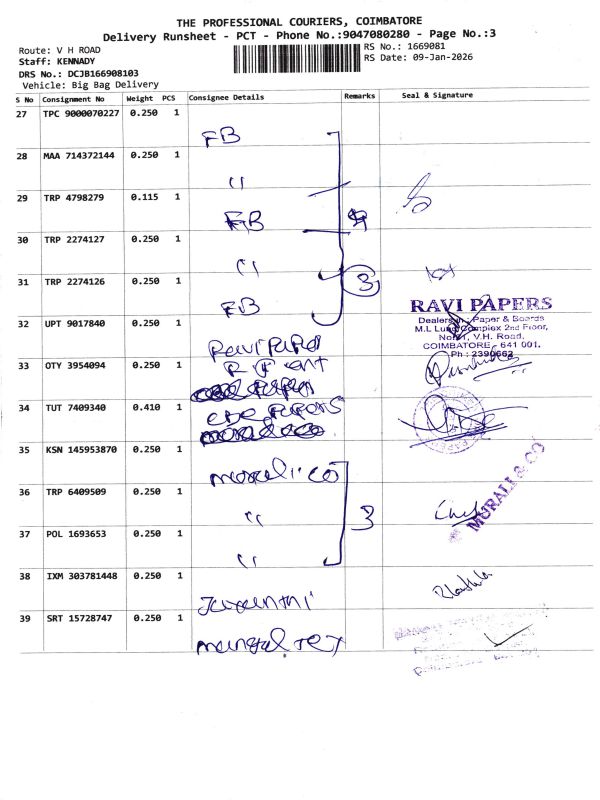 THE PROFESSIONAL COURIERS, COIMBATORE
Delivery Runsheet - PCT - Phone No.:9047080280 - Page No.:3
Route: V H ROAD
RS No.: 1669081
Staff: KENNADY
RS Date: 09-Jan-2026
DRS No.: DCJB166908103
Vehicle: Big Bag Delivery
S No Consignment No Weight PCS Consignee Details Remarks Seal & Signature
27 TPC 9000070227 0.250 1
FB
28 MAA 714372144 0.250 1
"
29 TRP 4798279 0.115 1
FB
30 TRP 2274127 0.250 1
"
31 TRP 2274126 0.250 1
3
FB
32 UPT 9017840 0.250 1
Ravi Paper
RAVI PAPERS
Dealers in : Paper & Boards
M.L Lund Complex 2nd Floor,
V.H. Road,
COIMBATORE - 641 001.
Ph : 2390662
33 OTY 3954094 0.250 1
34 TUT 7409340 0.410 1
35 KSN 145953870 0.250 1
Murali & Co
36 TRP 6409509 0.250 1
"
3
MURALI & CO
37 POL 1693653 0.250 1
"
38 IXM 303781448 0.250 1
Jayanthi
39 SRT 15728747 0.250 1
Mangal Tex